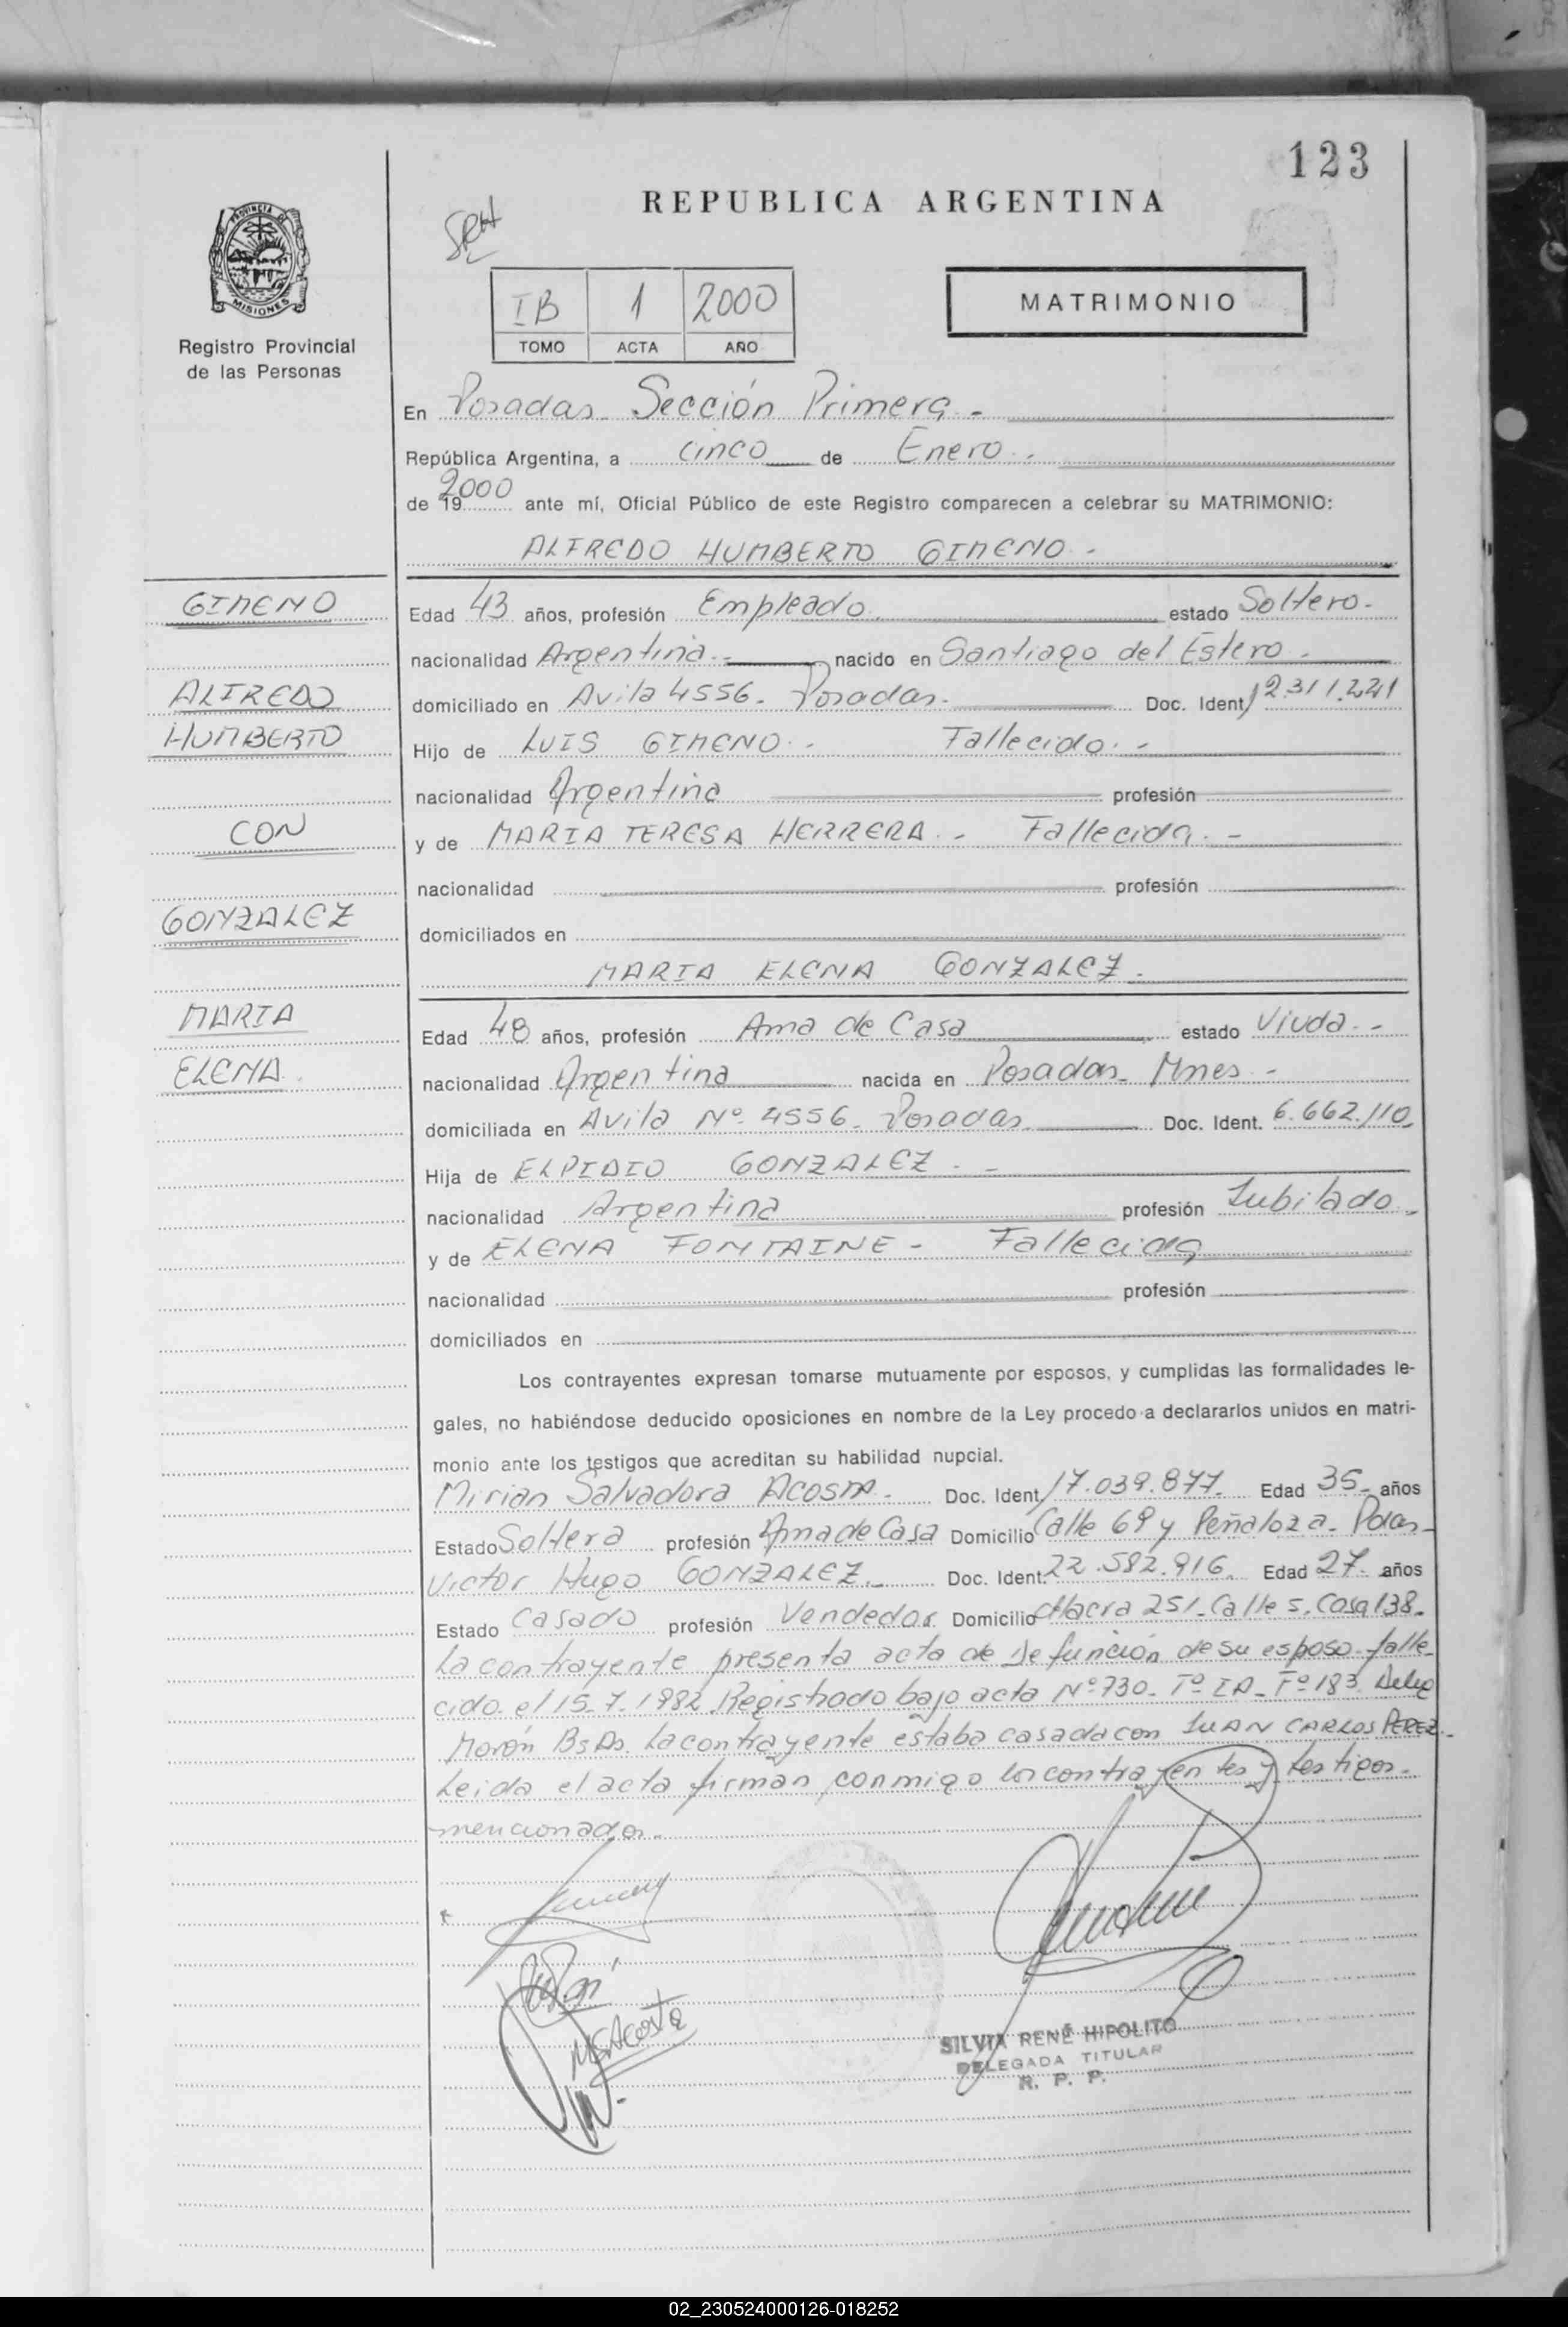 123
REPUBLICA ARGENTINA
PROVINCIA DE
MISIONES
Registro Provincial
de las Personas
IB 1 2000
TOMO ACTA AÑO
MATRIMONIO
En Posadas. Sección Primera -
República Argentina, a cinco de Enero.
de 19 2000 ante mí, Oficial Público de este Registro comparecen a celebrar su MATRIMONIO:
ALFREDO HUMBERTO GIMENO -
GIMENO
Edad 43 años, profesión Empleado. estado Soltero.
nacionalidad Argentina. nacido en Santiago del Estero.
ALFREDO
domiciliado en Avila 4556. Posadas. Doc. Ident. 12.311.221
HUMBERTO
Hijo de LUIS GIMENO. - Fallecido. -
nacionalidad Argentina profesión
CON
y de MARIA TERESA HERRERA. - Fallecida. -
nacionalidad profesión
GONZALEZ
domiciliados en
MARIA ELENA GONZALEZ.
MARIA
Edad 48 años, profesión Ama de Casa estado Viuda. -
ELENA.
nacionalidad Argentina nacida en Posadas. Mnes. -
domiciliada en Avila Nº 4556. Posadas. Doc. Ident. 6.662.110.
Hija de ELPIDIO GONZALEZ. -
nacionalidad Argentina profesión Jubilado.
y de ELENA FONTAINE - Fallecida
nacionalidad profesión
domiciliados en
Los contrayentes expresan tomarse mutuamente por esposos, y cumplidas las formalidades le-
gales, no habiéndose deducido oposiciones en nombre de la Ley procedo a declararlos unidos en matri-
monio ante los testigos que acreditan su habilidad nupcial.
Mirian Salvadora ACOSTA. Doc. Ident. 17.039.877. Edad 35 años
Estado Soltera profesión Ama de Casa Domicilio Calle 69 y Peñaloza. Pdas.
Victor Hugo GONZALEZ. Doc. Ident. 22.582.916. Edad 27. años
Estado Casado profesión Vendedor Domicilio Chacra 251. Calle 5. Casa 138.
La contrayente presenta acta de Defunción de su esposo falle-
cido el 15.7.1982. Registrado bajo acta Nº 730. Tº IA. Fº 183.
Morón Bs As. La contrayente estaba casada con JUAN CARLOS PEREZ.
Leida el acta firman conmigo los contrayentes y testigos
mencionados.
MSAcosta
SILVIA RENÉ HIPOLITO
DELEGADA TITULAR
R. P. P.
02_230524000126-018252